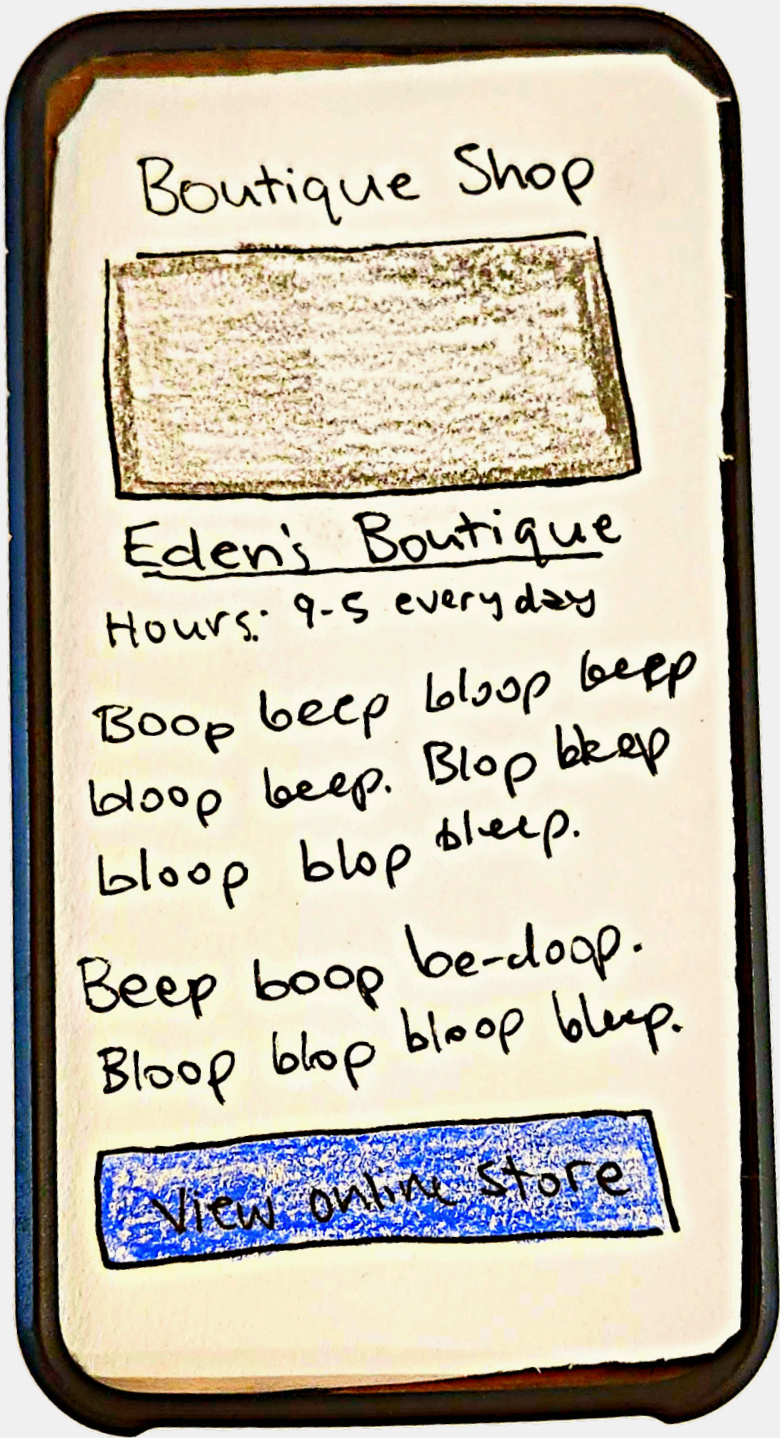 Boutique Shop
Eden's Boutique
Hours: 9-5 every day
Boop beep bloop beep
bloop beep. Blop bleep
bloop blop bleep.
Beep boop be-doop.
Bloop blop bloop bleep.
View online store